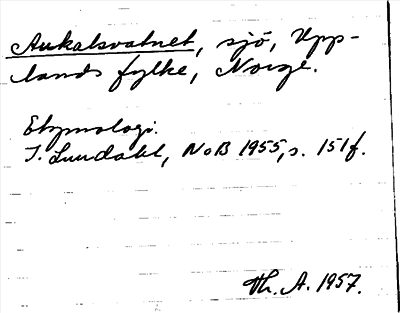 Aukalsvatnet, sjö, Upp-
lands fylke, Norge.
Etymologi.
I. Lundahl, NoB 1955, s. 151f.
Th. A. 1957.